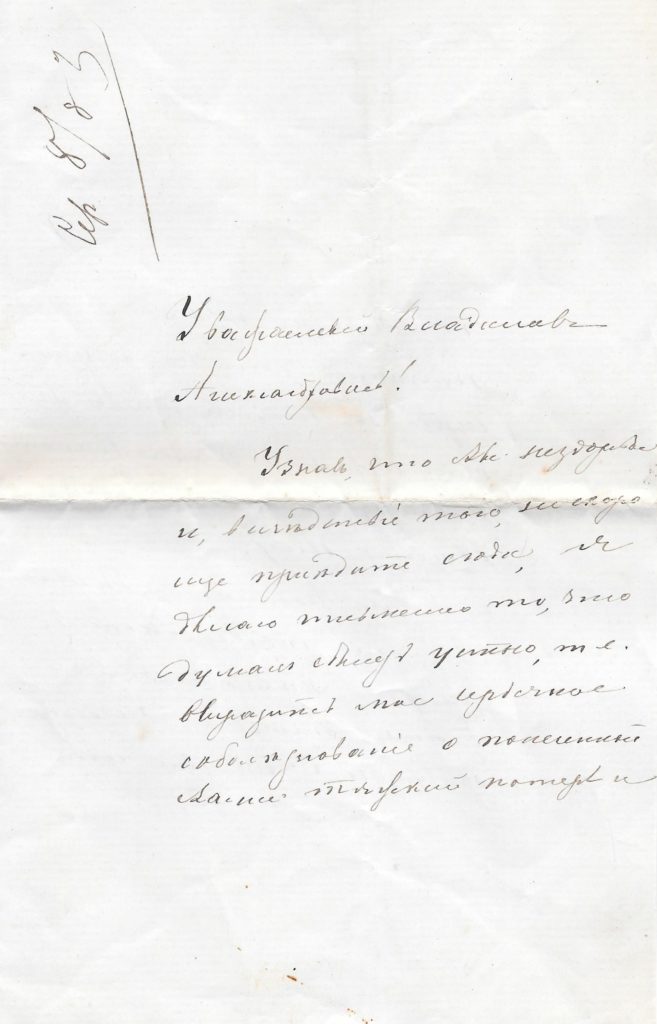 Сер 8/8 83
Уважаемый Владислав
Александрович!
Узнав, что Вы нездоровы
и, вследствие того, не скоро
еще приедите сюда, я
делаю письменно то, что
думал сделать устно, т. е.
выразить мое сердечное
соболезнование о понесенной
Вами тяжкой потере и